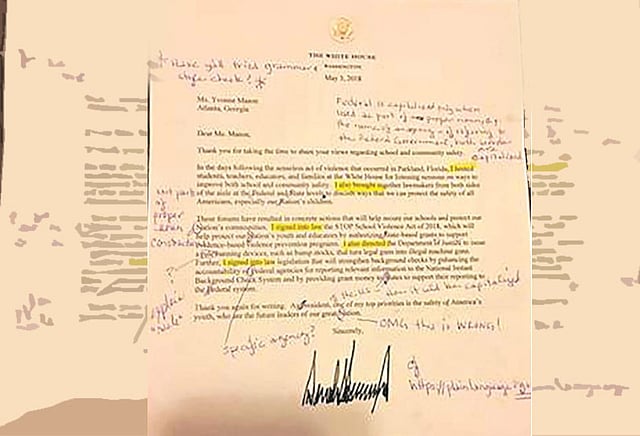 THE WHITE HOUSE
WASHINGTON
May 3, 2018
Have y'all tried grammar &
style check?
Ms. Yvonne Mason
Atlanta, Georgia
Federal is capitalized only when
used as part of proper
Dear Ms. Mason,
capitalized
Thank you for taking the time to share your views regarding school and community safety.
In the days following the senseless act of violence that occurred in Parkland, Florida, I hosted
students, teachers, educators, and families at the White House for listening sessions on ways to
improve both school and community safety. I also brought together lawmakers from both sides
of the aisle at the Federal and State levels to discuss ways that we can protect the safety of all
Americans, especially our Nation's children.
not part
of
proper
noun
These forums have resulted in concrete actions that will help secure our schools and protect our
Nation's communities. I signed into law the STOP School Violence Act of 2018, which will
help protect our Nation's youth and educators by authorizing state-based grants to support
evidence-based violence prevention programs. I also directed the Department of Justice to issue
devices, such as bump stocks, that turn legal guns into illegal machine guns.
Further, I signed into law legislation that will strengthen background checks by enhancing the
accountability of Federal agencies for reporting relevant information to the National Instant
Background Check System and by providing grant money to states to support their reporting to
the Federal system.
explain
"rule"
Thank you again for writing. As President, one of my top priorities is the safety of America's
youth, who are the future leaders of our great Nation.
Sincerely,
OMG this is WRONG!
specific agency?
of
https://plainlanguage.gov